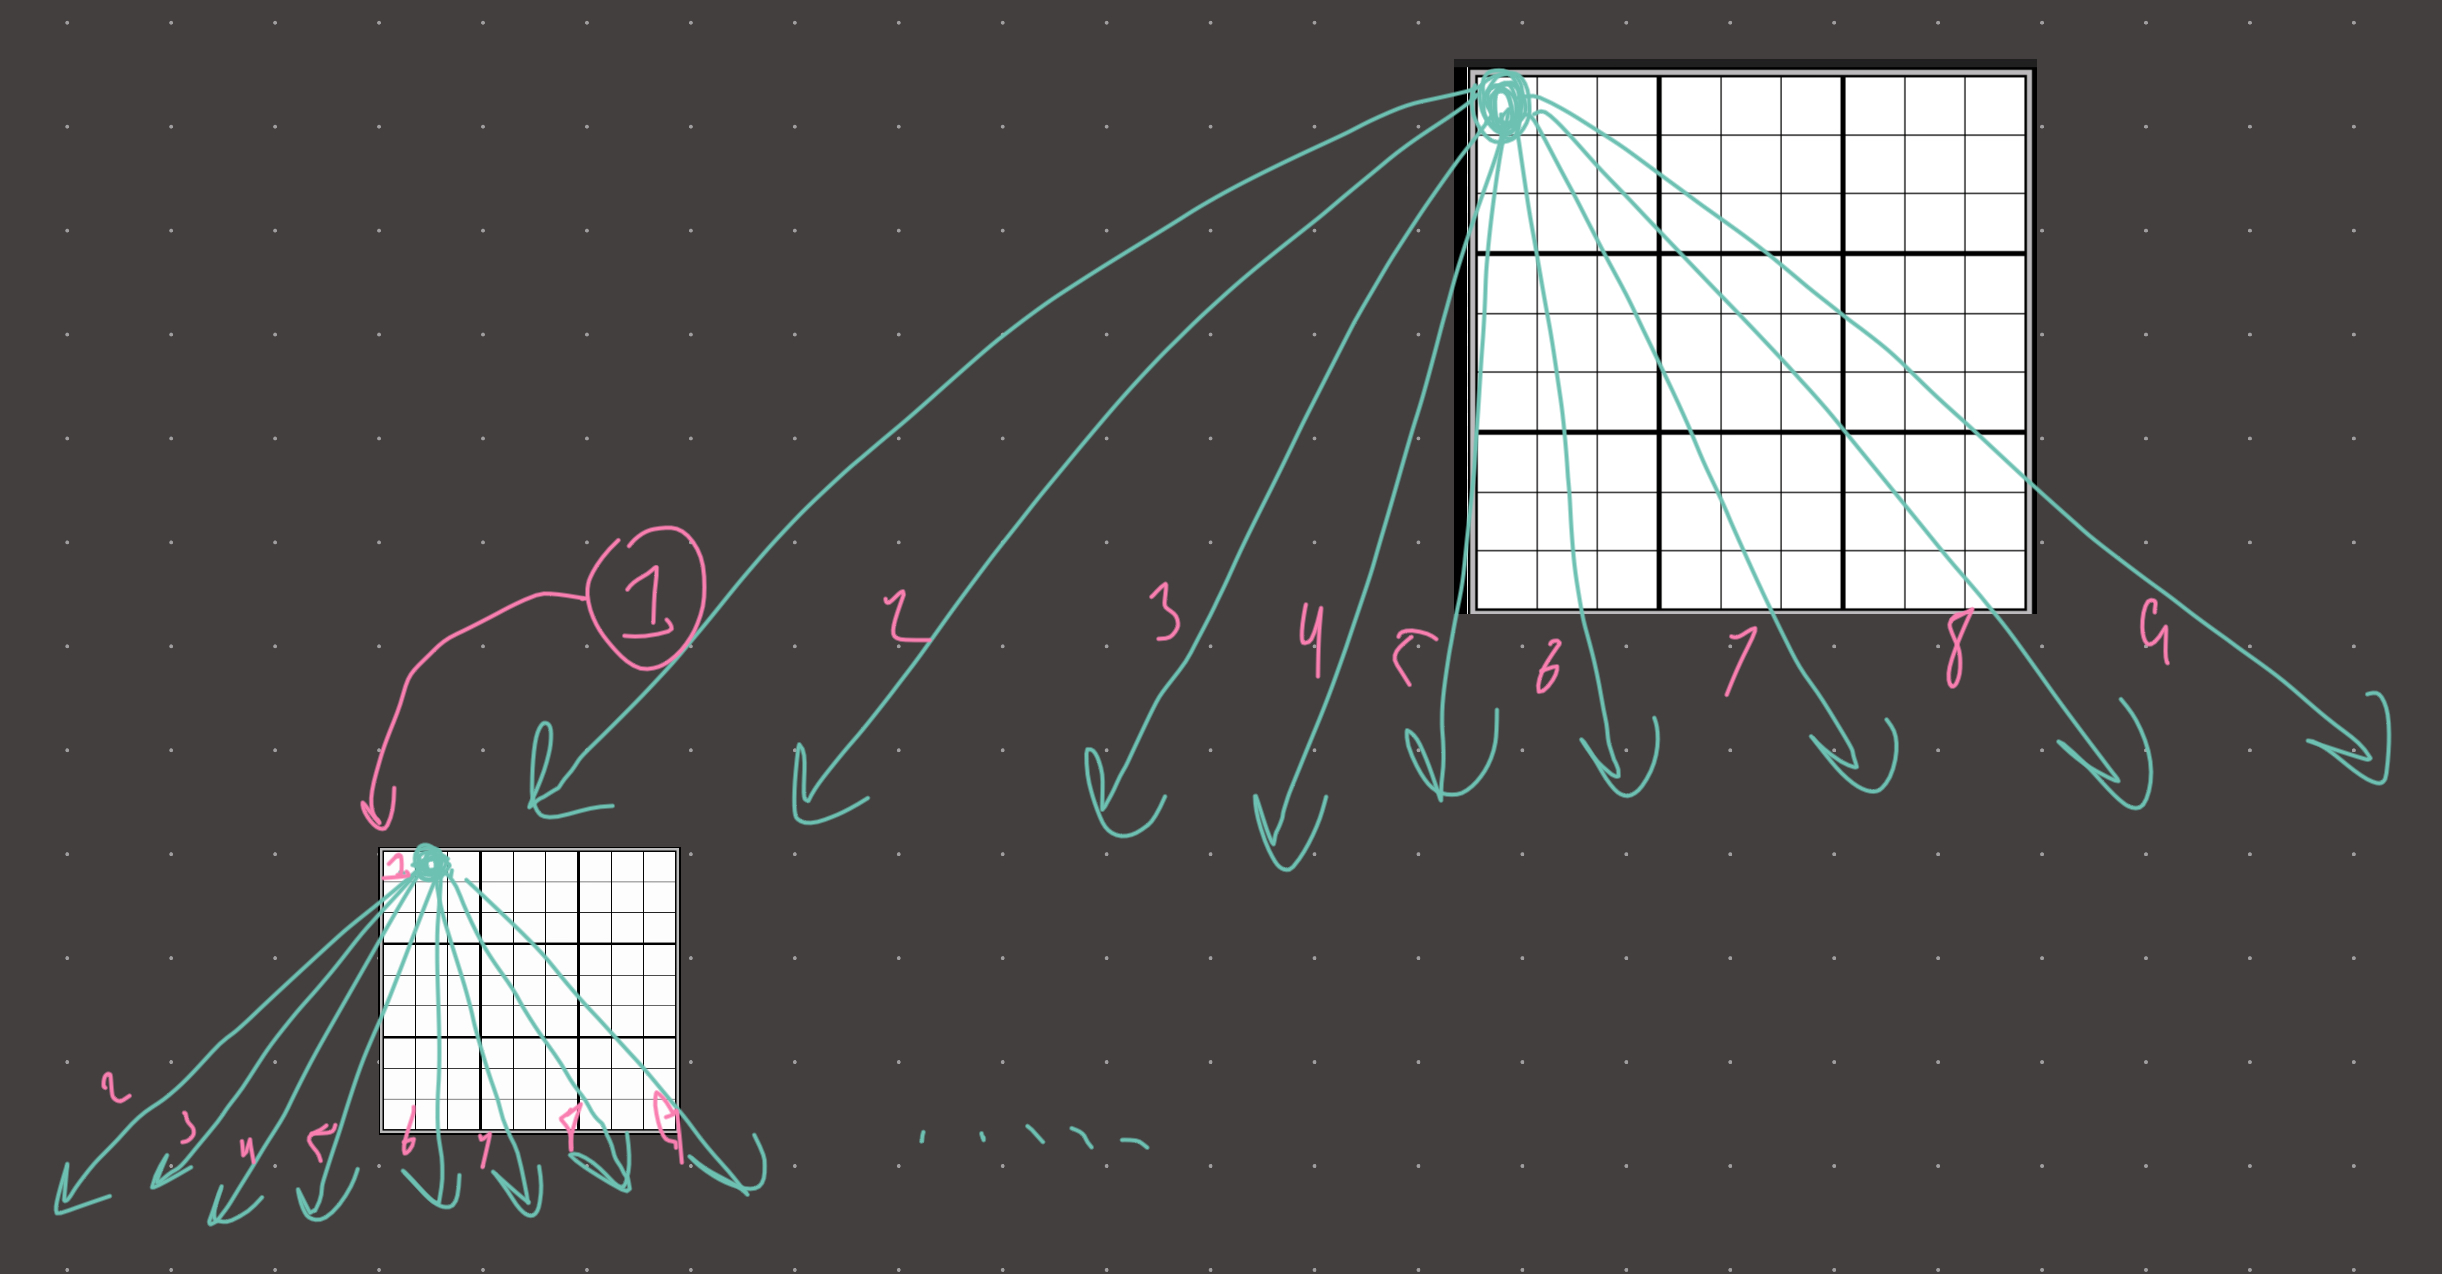 1
2
3
4
5
6
7
8
9
1
2
3
4
5
6
7
8
9